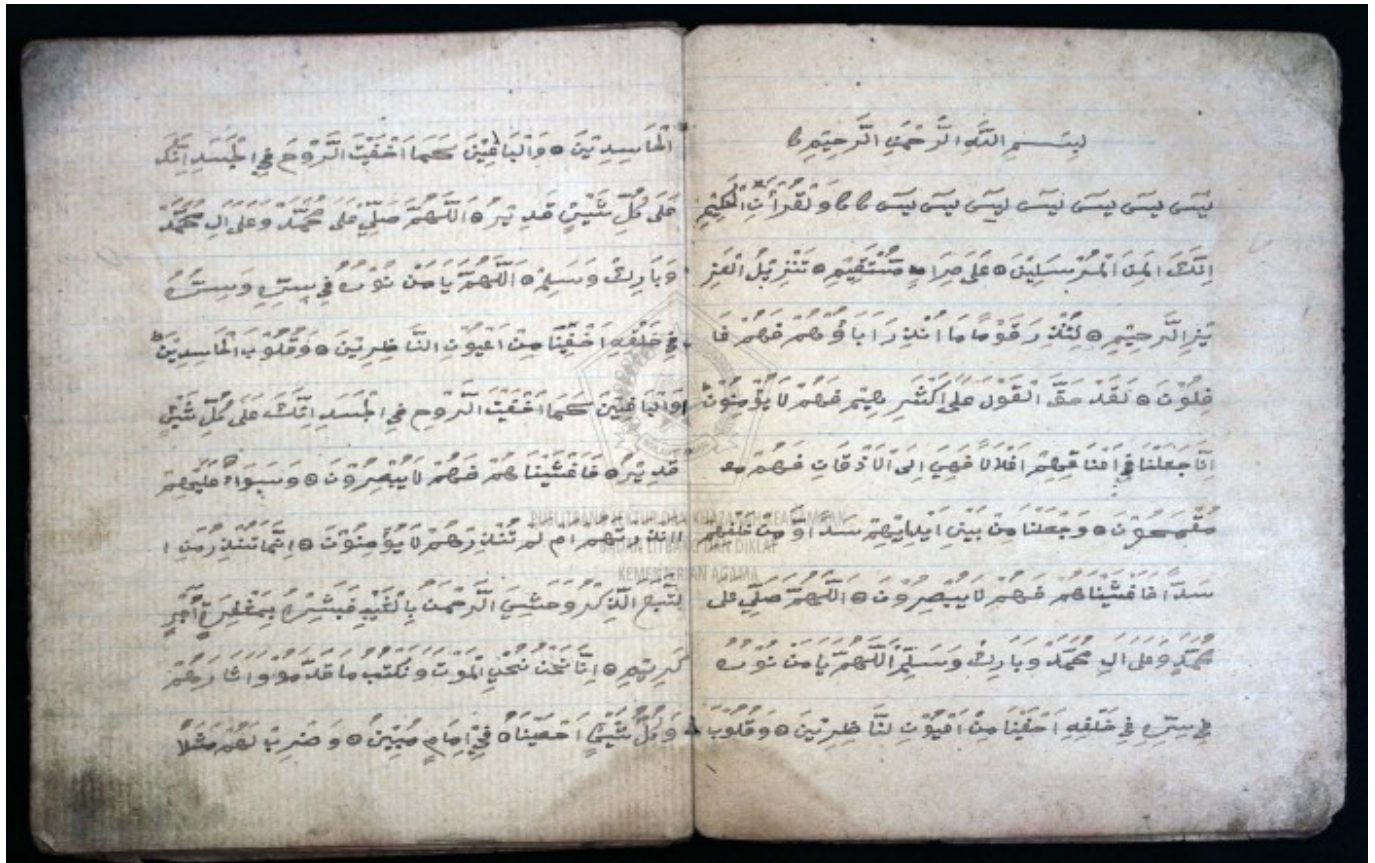 بِسْــمِ اللَّهِ الرَّحْمٰنِ الرَّحِيْمِ
يٰسٓ يٰسٓ يٰسٓ يٰسٓ يٰسٓ يٰسٓ يٰسٓ وَلْقُرْاٰنِ الْحَكِيْمِ
اِنَّكَ لَمِنَ الْمُرْسَلِيْنَ ۞ عَلَى صِرَاطٍ مُسْتَقِيْمٍ ۞ تَنْزِيْلُ الْعَزِ
يْزِ الرَّحِيْمِ ۞ لِتُنْذِرَ قَوْمًا مَا اُنْذِرَ اٰبَاؤُهُمْ فَهُمْ غَا
فِلُوْنَ ۞ لَقَدْ حَقَّ الْقَوْلُ عَلَى اَكْثَرِهِيْمْ فَهُمْ لَا يُؤْمِنُوْنَ
اِنَّا جَعَلْنَا فِيْ اَعْنَاقِهِمْ اَغْلَالًا فَهِيَ اِلَى الْاَذْقَانِ فَهُمْ
مُقْمَحُوْنَ ۞ وَجَعَلْنَا مِنْ بَيْنِ اَيْدِيْهِمْ سَدًّا وَمِنْ خَلْفِهِمْ
سَدًّا فَاَغْشَيْنَاهُمْ فَهُمْ لَا يُبْصِرُوْنَ ۞ اَللّٰهُمَّ صَلِّيْ عَلٰى
مُحَمَّدٍ وَعَلٰى اٰلِ مُحَمَّدٍ وَبَارِكْ وَسَلِّمْ اَللّٰهُمَّ يَا مَنْ نُوْرُهُ
فِيْ سِرِّهِ فِيْ خَلْقِهِ اَخْفِيْنَا مِنْ اَعْيُوْنِ لنَّاظِرِيْنَ ۞ وَقُلُوْبَ
الْحَاسِدِيْنَ ۞ وَالْبَاغِيْنَ كَمَا اَخْفَيْتَ الرُّوْحَ فِي الْجَسَدِ اِنَّكَ
عَلَى كُلِّ شَيْئٍ قَدِيْرُ ۞ اَللّٰهُمَّ صَلِّيْ عَلَى مُحَمَّدْ وَعَلَى اٰلِ مُحَمَّدْ
وَبَارِكْ وَسَلِمْ ۞ اَللّٰهُمَّ يَا مَنْ نُوْرُهُ فِيْ سِرِّهِ وَسِرُّهُ
فِيْ خَلْقِهِ اَخْفِيْنَا مِنْ اَعْيُوْنِ النَّاظِرِيْنَ ۞ وَقُلُوْبَ الْحَاسِدِيْنَ
وَالْبَاغِيْنَ كَمَا اَخْفَيْتَ الرُّوْحِ فِي الْجَسَدِ اِنَّكَ عَلَى كُلِّ شَيْئٍ
قَدِيْرُ ۞ فَاَغْشَيْنَاهُمْ فَهُمْ لَا يُبْصِرُوْنَ ۞ وَسَوَاءٌ عَلَيْهِمْ
ءَاَنْذَرْتَهُمْ اَمْ لَمْ تُنْذِرْهُمْ لَا يُؤْمِنُوْنَ ۞ اِنَّمَا تُنْذِرُ مَنِ ا
لتَّبَعَ الذِّكْرَ وَخَشِيَ الرَّحْمٰنَ بِالْغَيْبِ فَبَشِّرْهُ بِمَغْفِرَةٍ اَجْرٍ
كَرِيْمٍ ۞ اِنَّا نَحْنُ نُحْيِ الْمَوْتَ وَنَكْتُبُ مَا قَدَّمُوْا وَاٰثَارَهُمْ
وَكُلُّ شَيْئٍ اَحْصَيْنَاهُ فِيْ اِمَامٍ مُبِيْنٍ ۞ وَضْرِبْ لَهُمْ مَثَلًا
PUSLITBANG LEKTUR DAN KHAZANAH KEAGAMAAN
BADAN LITBANG DAN DIKLAT
KEMENTERIAN AGAMA